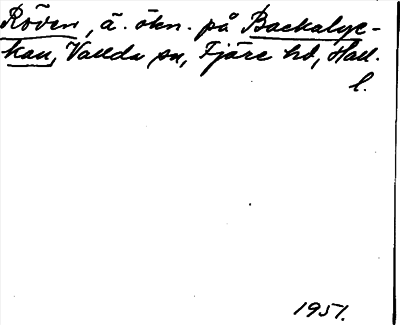 Röven, ä. ökn. på Backalyc-
kan, Vallda sn, Fjäre hd, Hall.
l.
1951.